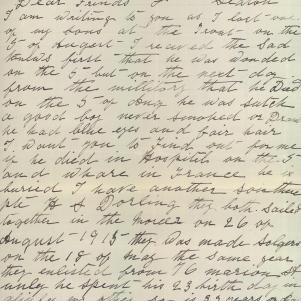 Dear Friends
I am writing to you as I lost one
of my sons at the Front on the
5 of August I receved the sad
first that he was wonded
on the 5 but on the next day
from the military that he Died
on the 5 of Aug he was sutch
a good boy never smoked or Drank
he had blue eyes and fair hair
I Want you to find out for me
if he died in Hospital on the 5
and whare in France he is
buried I have another son there
pte H S Dorling they both sailed
together in the on 26 of
August 1915 they Was made Solgers
on the 18 of may the same year
they enlisted from 16 marion St
unly he spent his 23 birth day in
my other son is 33 years